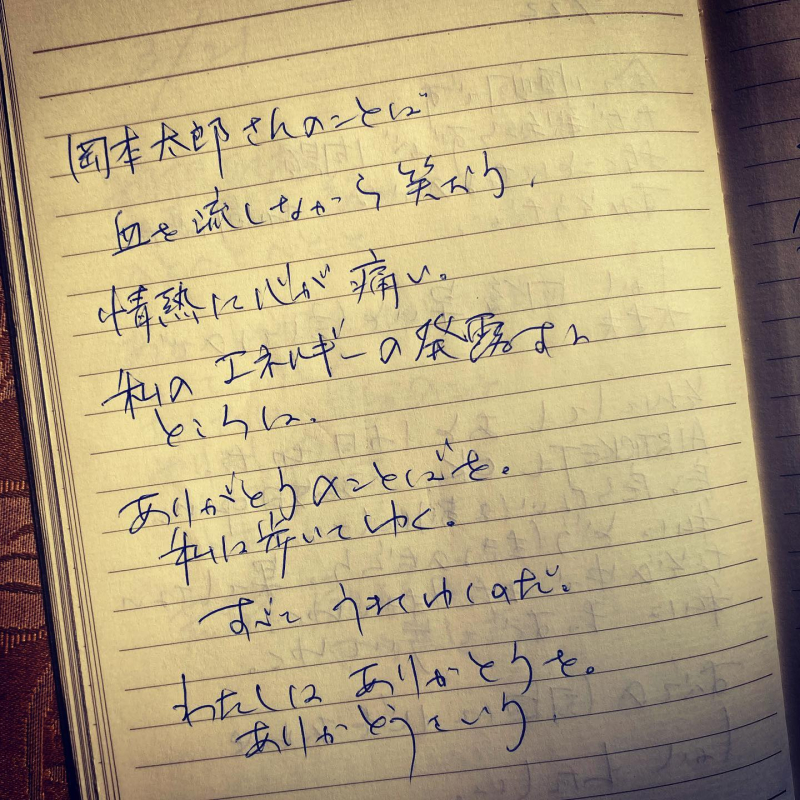 岡本太郎さんのことば
血を流しながら笑おう、
情熱に心が痛い。
私のエネルギーの発露する
ところに、
ありがとうのことばを。
私は歩いてゆく。
すべて うまくゆくのだ。
わたしは ありがとうを。
ありがとうという